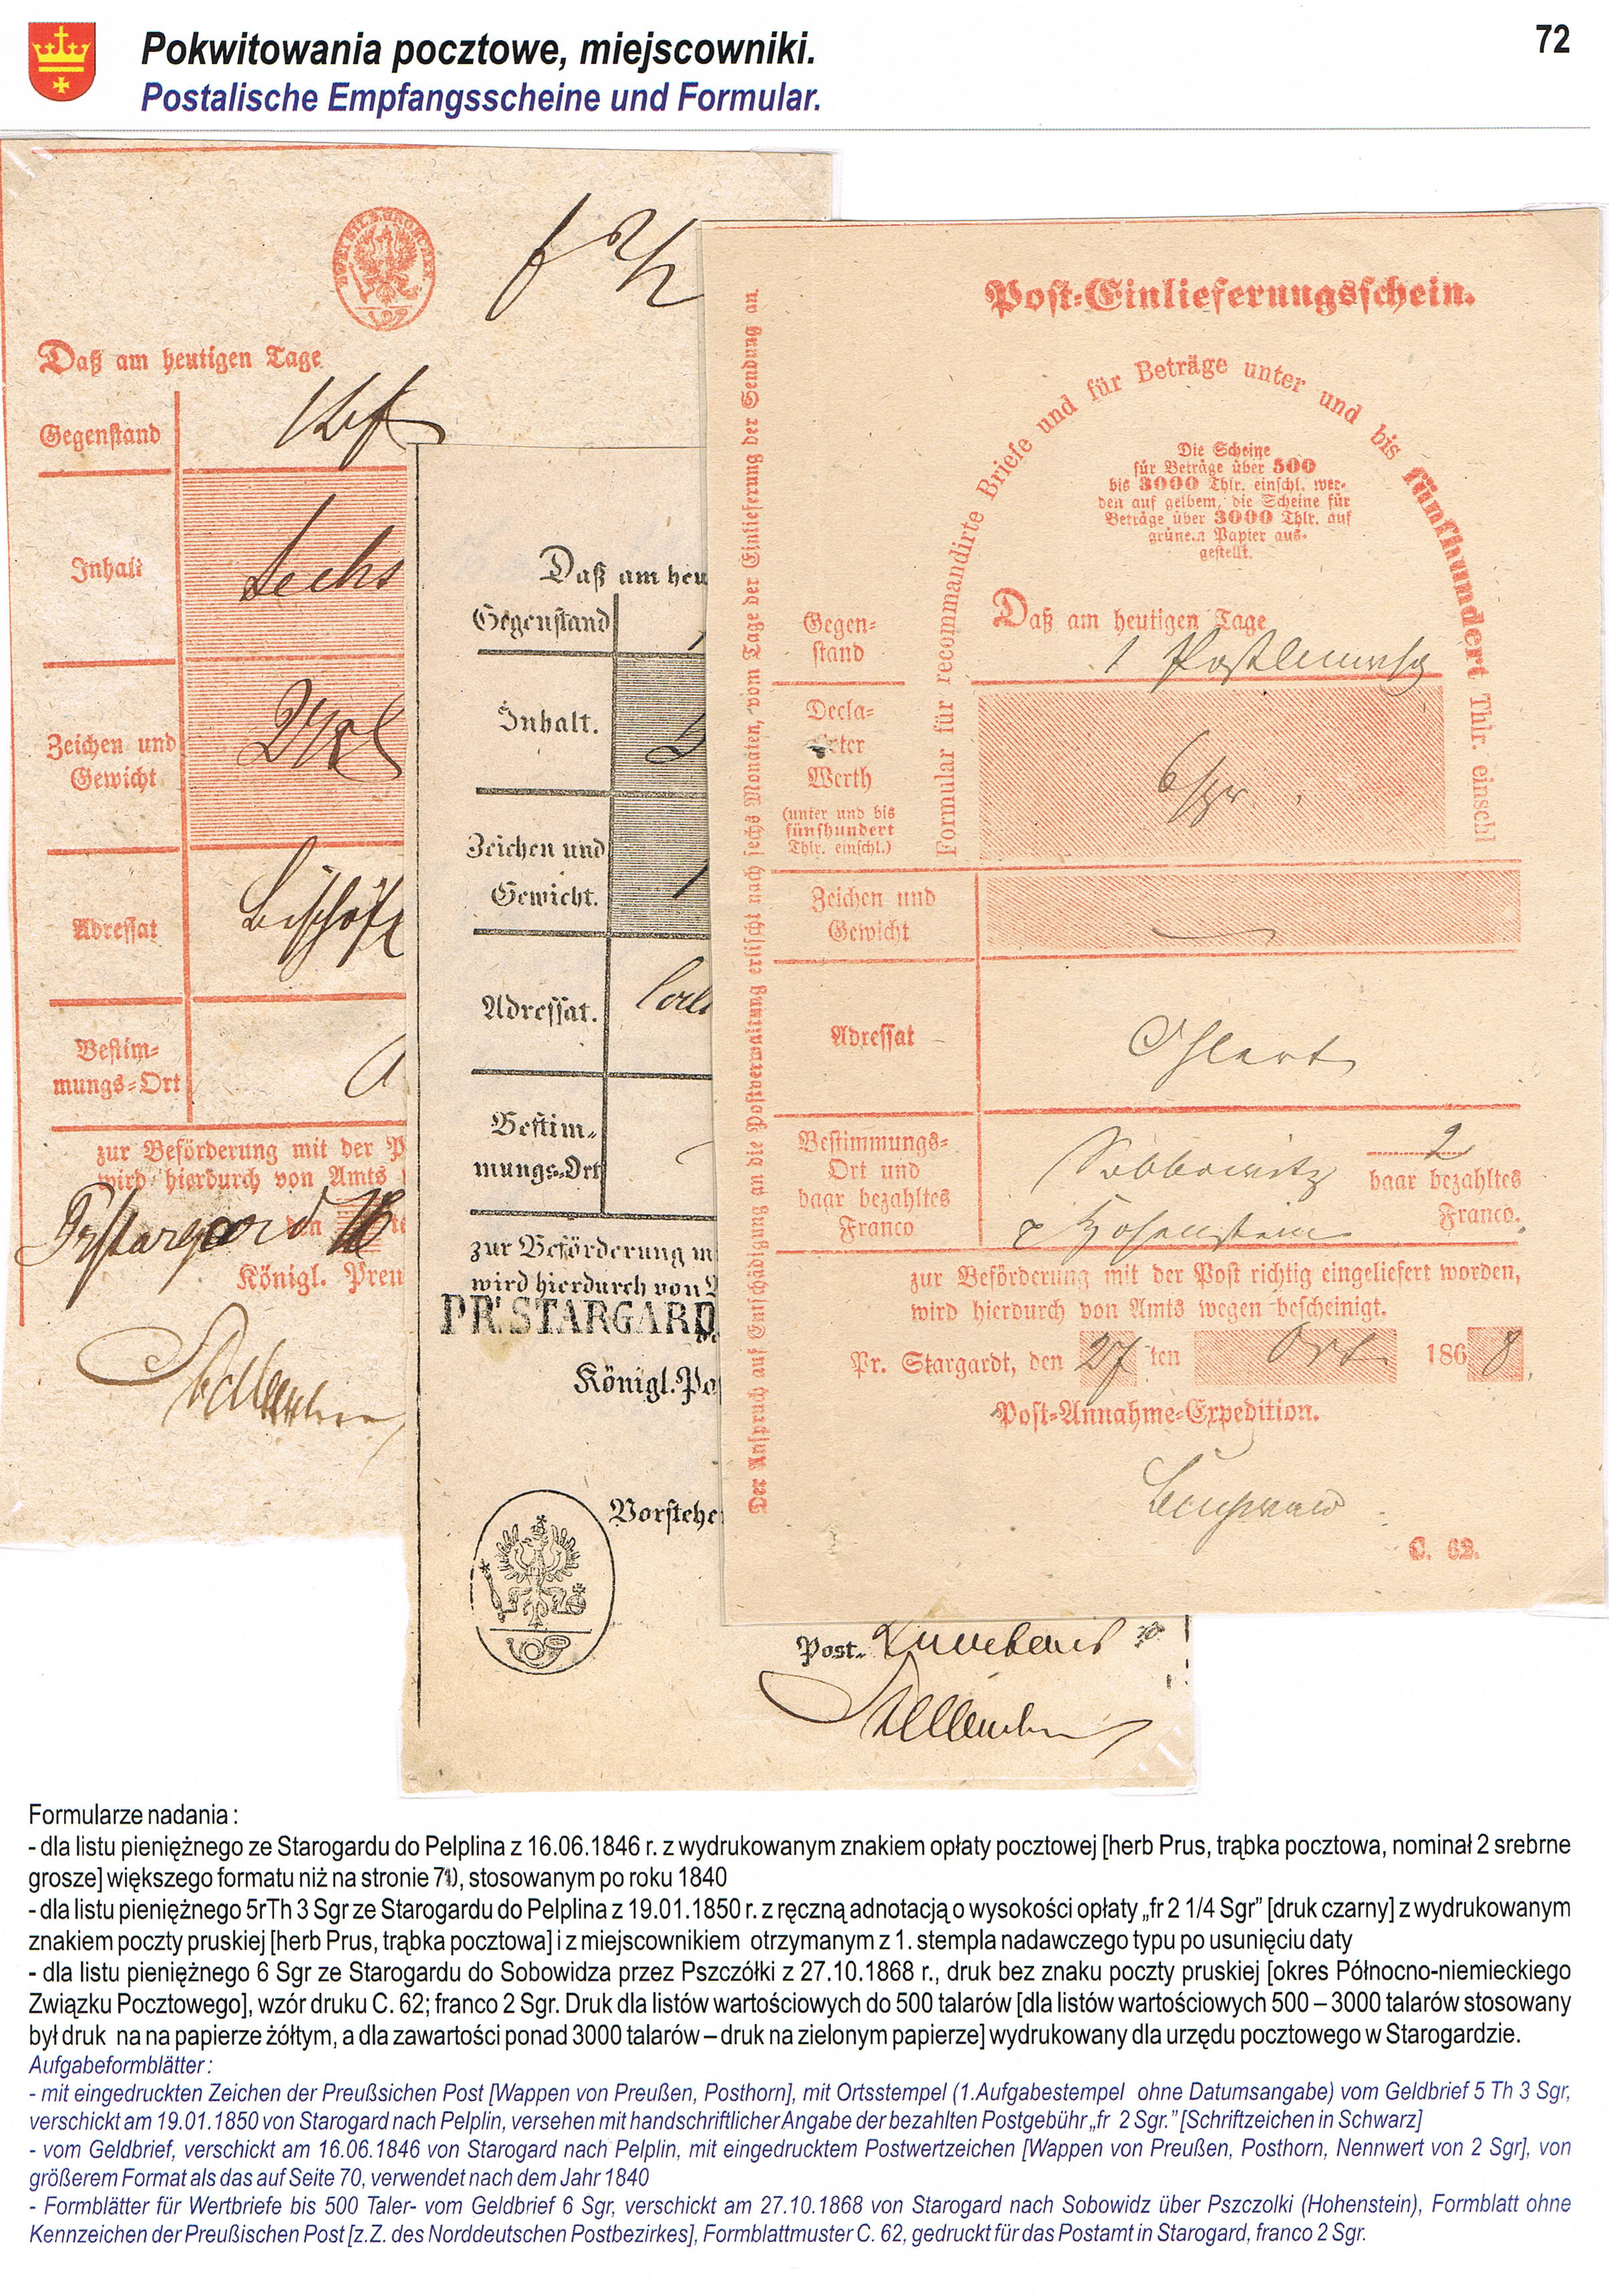 Pokwitowania pocztowe, miejscowniki.
72
Postalische Empfangsscheine und Formular.
Daß am heutigen Tage
Gegenstand
Inhalt
Sechs
Zeichen und
Gewicht
Adressat
Bischöfl
Bestim-
mungs-Ort
zur Beförderung mit der P
wird hierdurch von Amts
Pr Stargard 16
Königl. Preu
Daß am heu
Gegenstand
Inhalt.
Zeichen und
Gewicht.
Adressat.
Bestim-
mungs-Ort
zur Beförderung m
wird hierdurch von
PR. STARGARD
Königl. Po
Vorstehe
Post-
Post-Einlieferungsschein.
Formular für recommandirte Briefe und für Beträge unter und bis fünfhundert Thlr. einschl
Die Scheine
für Beträge über 500
bis 3000 Thlr. einschl. wer-
den auf gelbem, die Scheine für
Beträge über 3000 Thlr. auf
grünem Papier aus-
gestellt.
Der Anspruch auf Entschädigung an die Postverwaltung erlischt nach sechs Monaten, vom Tage der Einlieferung der Sendung an.
Daß am heutigen Tage
Gegen-
stand
1
Decla-
rirter
Werth
(unter und bis
fünfhundert
Thlr. einschl.)
6 sgr.
Zeichen und
Gewicht
Adressat
Bestimmungs-
Ort und
baar bezahltes
Franco
Sobbowitz
p Hohenstein
2
baar bezahltes
Franco.
zur Beförderung mit der Post richtig eingeliefert worden,
wird hierdurch von Amts wegen bescheinigt.
Pr. Stargardt, den 27 ten Oct. 1868
Post-Annahme-Expedition.
C. 62.
Formularze nadania :
- dla listu pieniężnego ze Starogardu do Pelplina z 16.06.1846 r. z wydrukowanym znakiem opłaty pocztowej [herb Prus, trąbka pocztowa, nominał 2 srebrne
grosze] większego formatu niż na stronie 71), stosowanym po roku 1840
- dla listu pieniężnego 5rTh 3 Sgr ze Starogardu do Pelplina z 19.01.1850 r. z ręczną adnotacją o wysokości opłaty „fr 2 1/4 Sgr" [druk czarny] z wydrukowanym
znakiem poczty pruskiej [herb Prus, trąbka pocztowa] i z miejscownikiem otrzymanym z 1. stempla nadawczego typu po usunięciu daty
- dla listu pieniężnego 6 Sgr ze Starogardu do Sobowidza przez Pszczółki z 27.10.1868 r., druk bez znaku poczty pruskiej [okres Północno-niemieckiego
Związku Pocztowego], wzór druku C. 62; franco 2 Sgr. Druk dla listów wartościowych do 500 talarów [dla listów wartościowych 500 – 3000 talarów stosowany
był druk na na papierze żółtym, a dla zawartości ponad 3000 talarów – druk na zielonym papierze] wydrukowany dla urzędu pocztowego w Starogardzie.
Aufgabeformblätter :
- mit eingedruckten Zeichen der Preußsichen Post [Wappen von Preußen, Posthorn], mit Ortsstempel (1.Aufgabestempel ohne Datumsangabe) vom Geldbrief 5 Th 3 Sgr,
verschickt am 19.01.1850 von Starogard nach Pelplin, versehen mit handschriftlicher Angabe der bezahlten Postgebühr „fr 2 Sgr." [Schriftzeichen in Schwarz]
- vom Geldbrief, verschickt am 16.06.1846 von Starogard nach Pelplin, mit eingedrucktem Postwertzeichen [Wappen von Preußen, Posthorn, Nennwert von 2 Sgr], von
größerem Format als das auf Seite 70, verwendet nach dem Jahr 1840
- Formblätter für Wertbriefe bis 500 Taler- vom Geldbrief 6 Sgr, verschickt am 27.10.1868 von Starogard nach Sobowidz über Pszczolki (Hohenstein), Formblatt ohne
Kennzeichen der Preußischen Post [z.Z. des Norddeutschen Postbezirkes], Formblattmuster C. 62, gedruckt für das Postamt in Starogard, franco 2 Sgr.